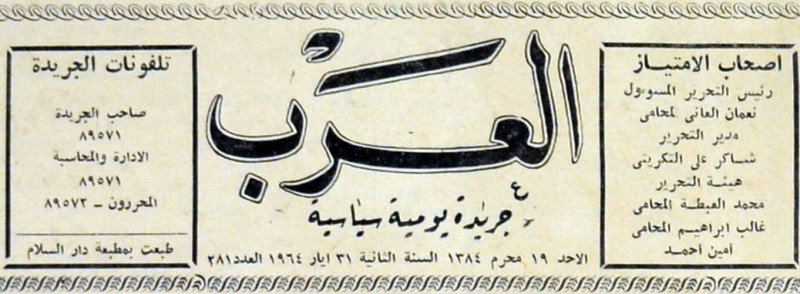 اصحاب الامتياز
رئيس التحرير المسوءول
نعمان العاني المحامي
مدير التحرير
شاكر علي التكريتي
هيئة التحرير
محمد العبطة المحامي
غالب ابراهيم المحامي
أمين احمد
العرب
جريدة يومية سياسية
الاحد ١٩ محرم ١٣٨٤ السنة الثانية ٣١ ايار ١٩٦٤ العدد ٢٨١
تلفونات الجريدة
صاحب الجريدة
٨٩٥٧١
الادارة والمحاسبة
٨٩٥٧١
المحررون - ٨٩٥٧٣
طبعت بمطبعة دار السلام